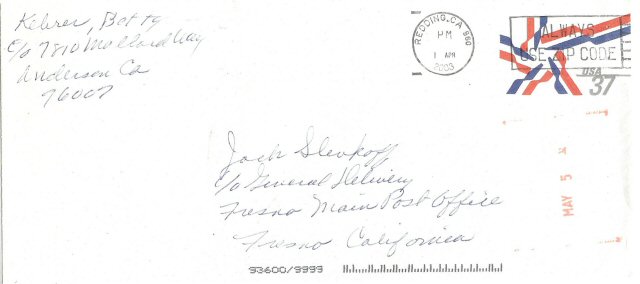 Kehrer, Betty
C/o 7810 Mallard Way
Anderson Ca
96007
REDDING, CA 960
PM
1 APR
2003
ALWAYS
USE ZIP CODE
USA
37
MAY 5
Jack Slevkoff
C/o General Delivery
Fresno Main Post Office
Fresno California
93600/9999